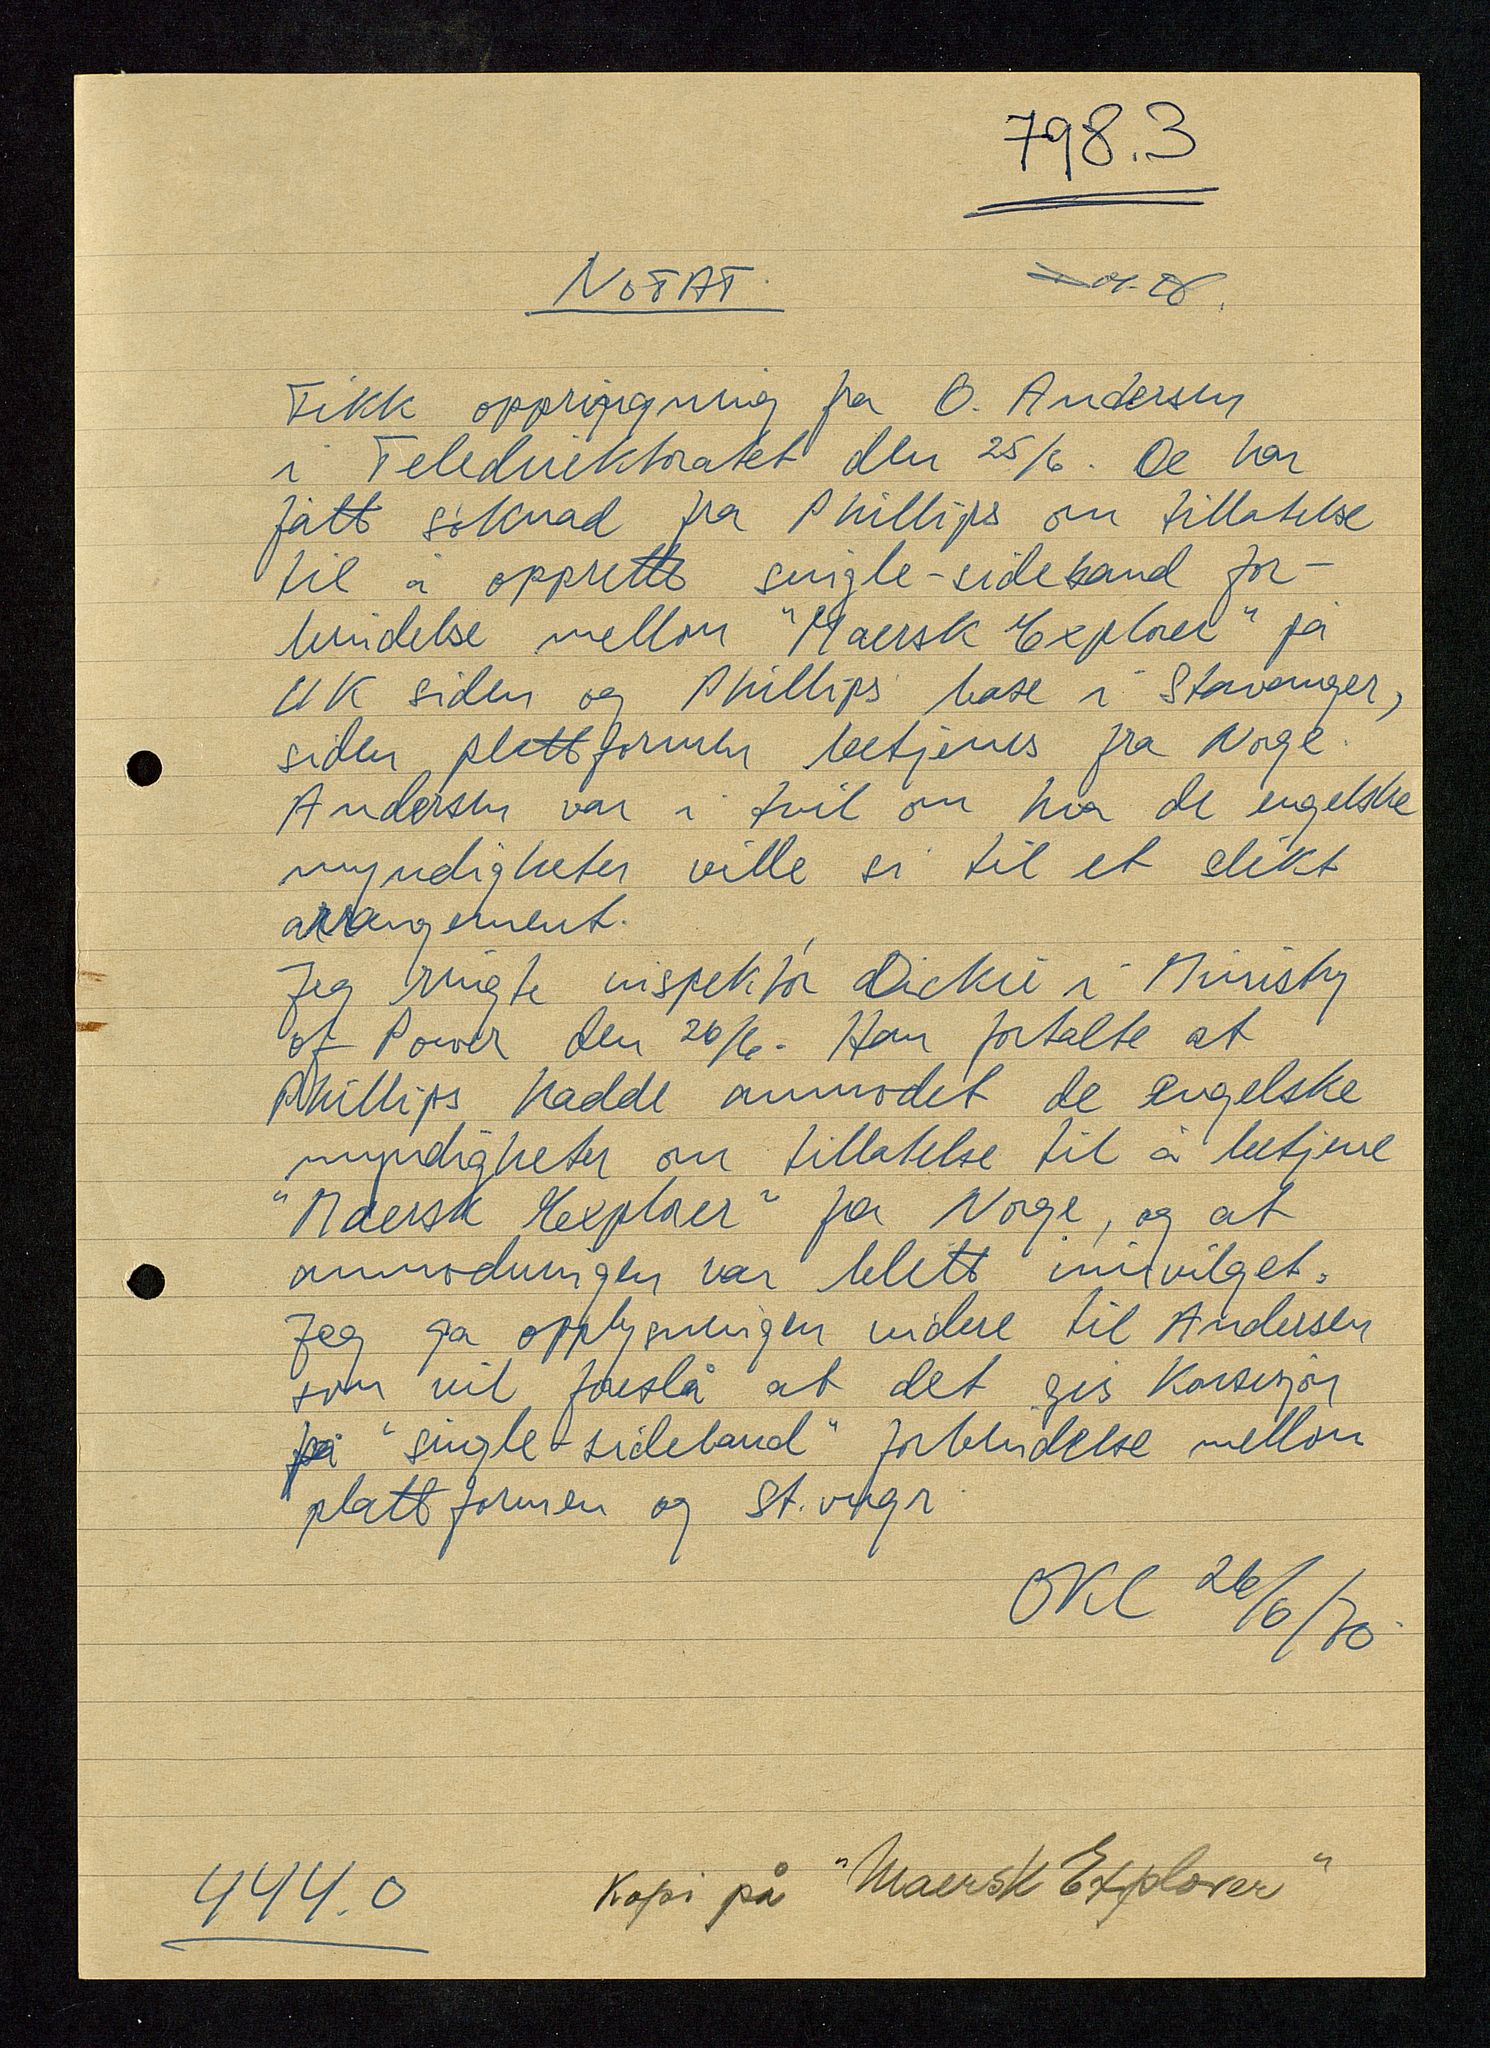 798.3
NOTAT.
Fikk oppringning fra O. Andersen
i Teledirektoratet den 25/6. De har
fått søknad fra Phillips om tillatelse
til å opprette single-sideband for-
bindelse mellom "Maersk Explorer" på
UK siden og Phillips' base i Stavanger,
siden plattformen betjenes fra Norge.
Andersen var i tvil om hva de engelske
myndigheter ville si til et slikt
arrangement.
Jeg ringte inspektør Dickie i Ministry
of Power den 26/6. Han fortalte at
Phillips hadde anmodet de engelske
myndigheter om tillatelse til å betjene
"Maersk Explorer" fra Norge, og at
anmodningen var blitt innvilget.
Jeg ga opplysningen videre til Andersen
som vil foreslå at det gis konsesjon
på "single-sideband" forbindelse mellom
plattformen og St.vngr.
26/6/70
444.0
Kopi på "Maersk Explorer"